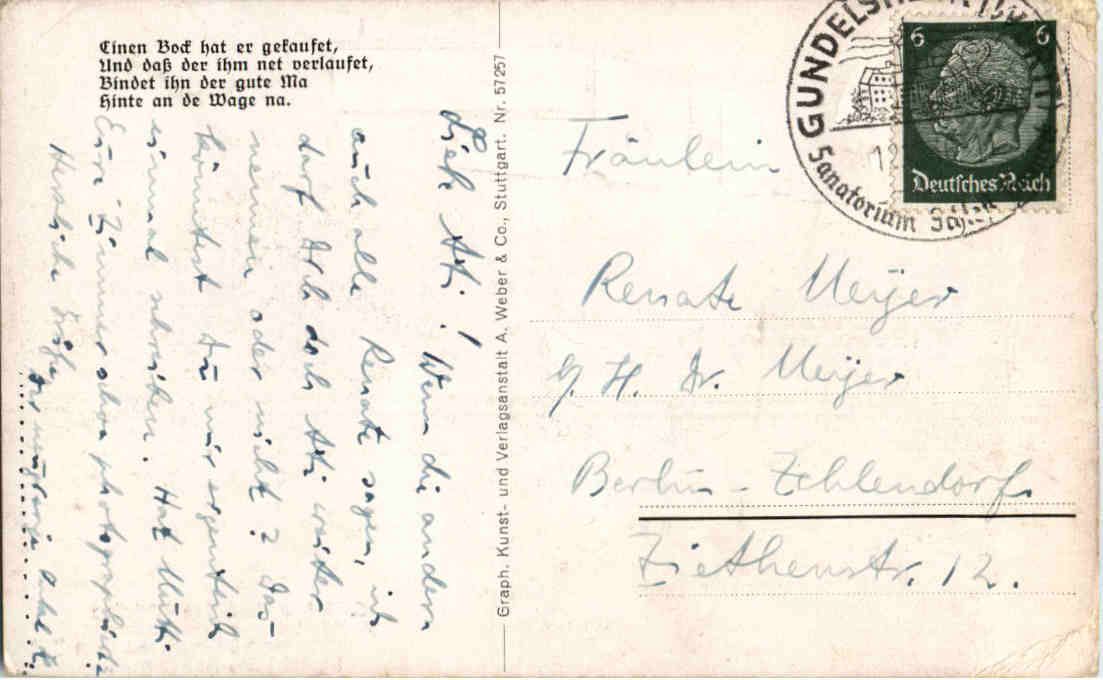 Einen Bock hat er gekaufet,
Und daß der ihm net verlaufet,
Bindet ihn der gute Ma
Hinte an de Wage na.
Wenn die andern
auch alle Renate sagen, ich
darf Dich doch weiter
nennen oder nicht? Das
könntest Du mir eigentlich
einmal schreiben. Hat Mutti
Eure Zimmer schon photographiert?
Herzliche Grüße
Graph. Kunst- und Verlagsanstalt A. Weber & Co., Stuttgart. Nr. 57257
GUNDELSHEIM
Sanatorium
6 6
Deutsches Reich
Fräulein
Renate Meyer
b/ H. Dr. Meyer
Berlin-Zehlendorf
Ziethenstr. 12.